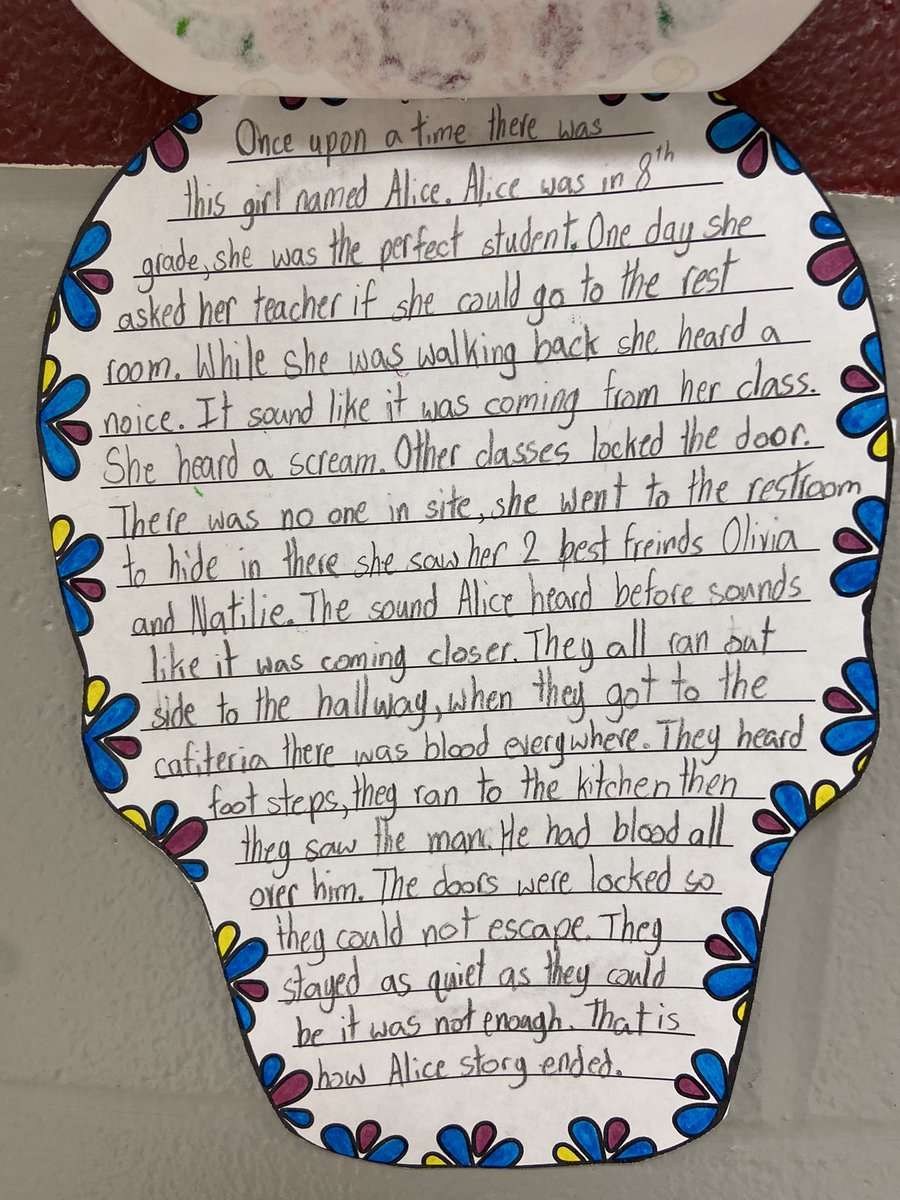 Once upon a time there was
this girl named Alice. Alice was in 8th
grade, she was the perfect student. One day she
asked her teacher if she could go to the rest
room. While she was walking back she heard a
noice. It sound like it was coming from her class.
She heard a scream. Other classes locked the door.
There was no one in site, she went to the restroom
to hide in there she saw her 2 best freinds Olivia
and Natilie. The sound Alice heard before sounds
like it was coming closer. They all ran out
side to the hallway, when they got to the
cafiteria there was blood everywhere. They heard
foot steps, they ran to the kitchen then
they saw the man. He had blood all
over him. The doors were locked so
they could not escape. They
stayed as quiet as they could
be it was not enough. That is
how Alice story ended.